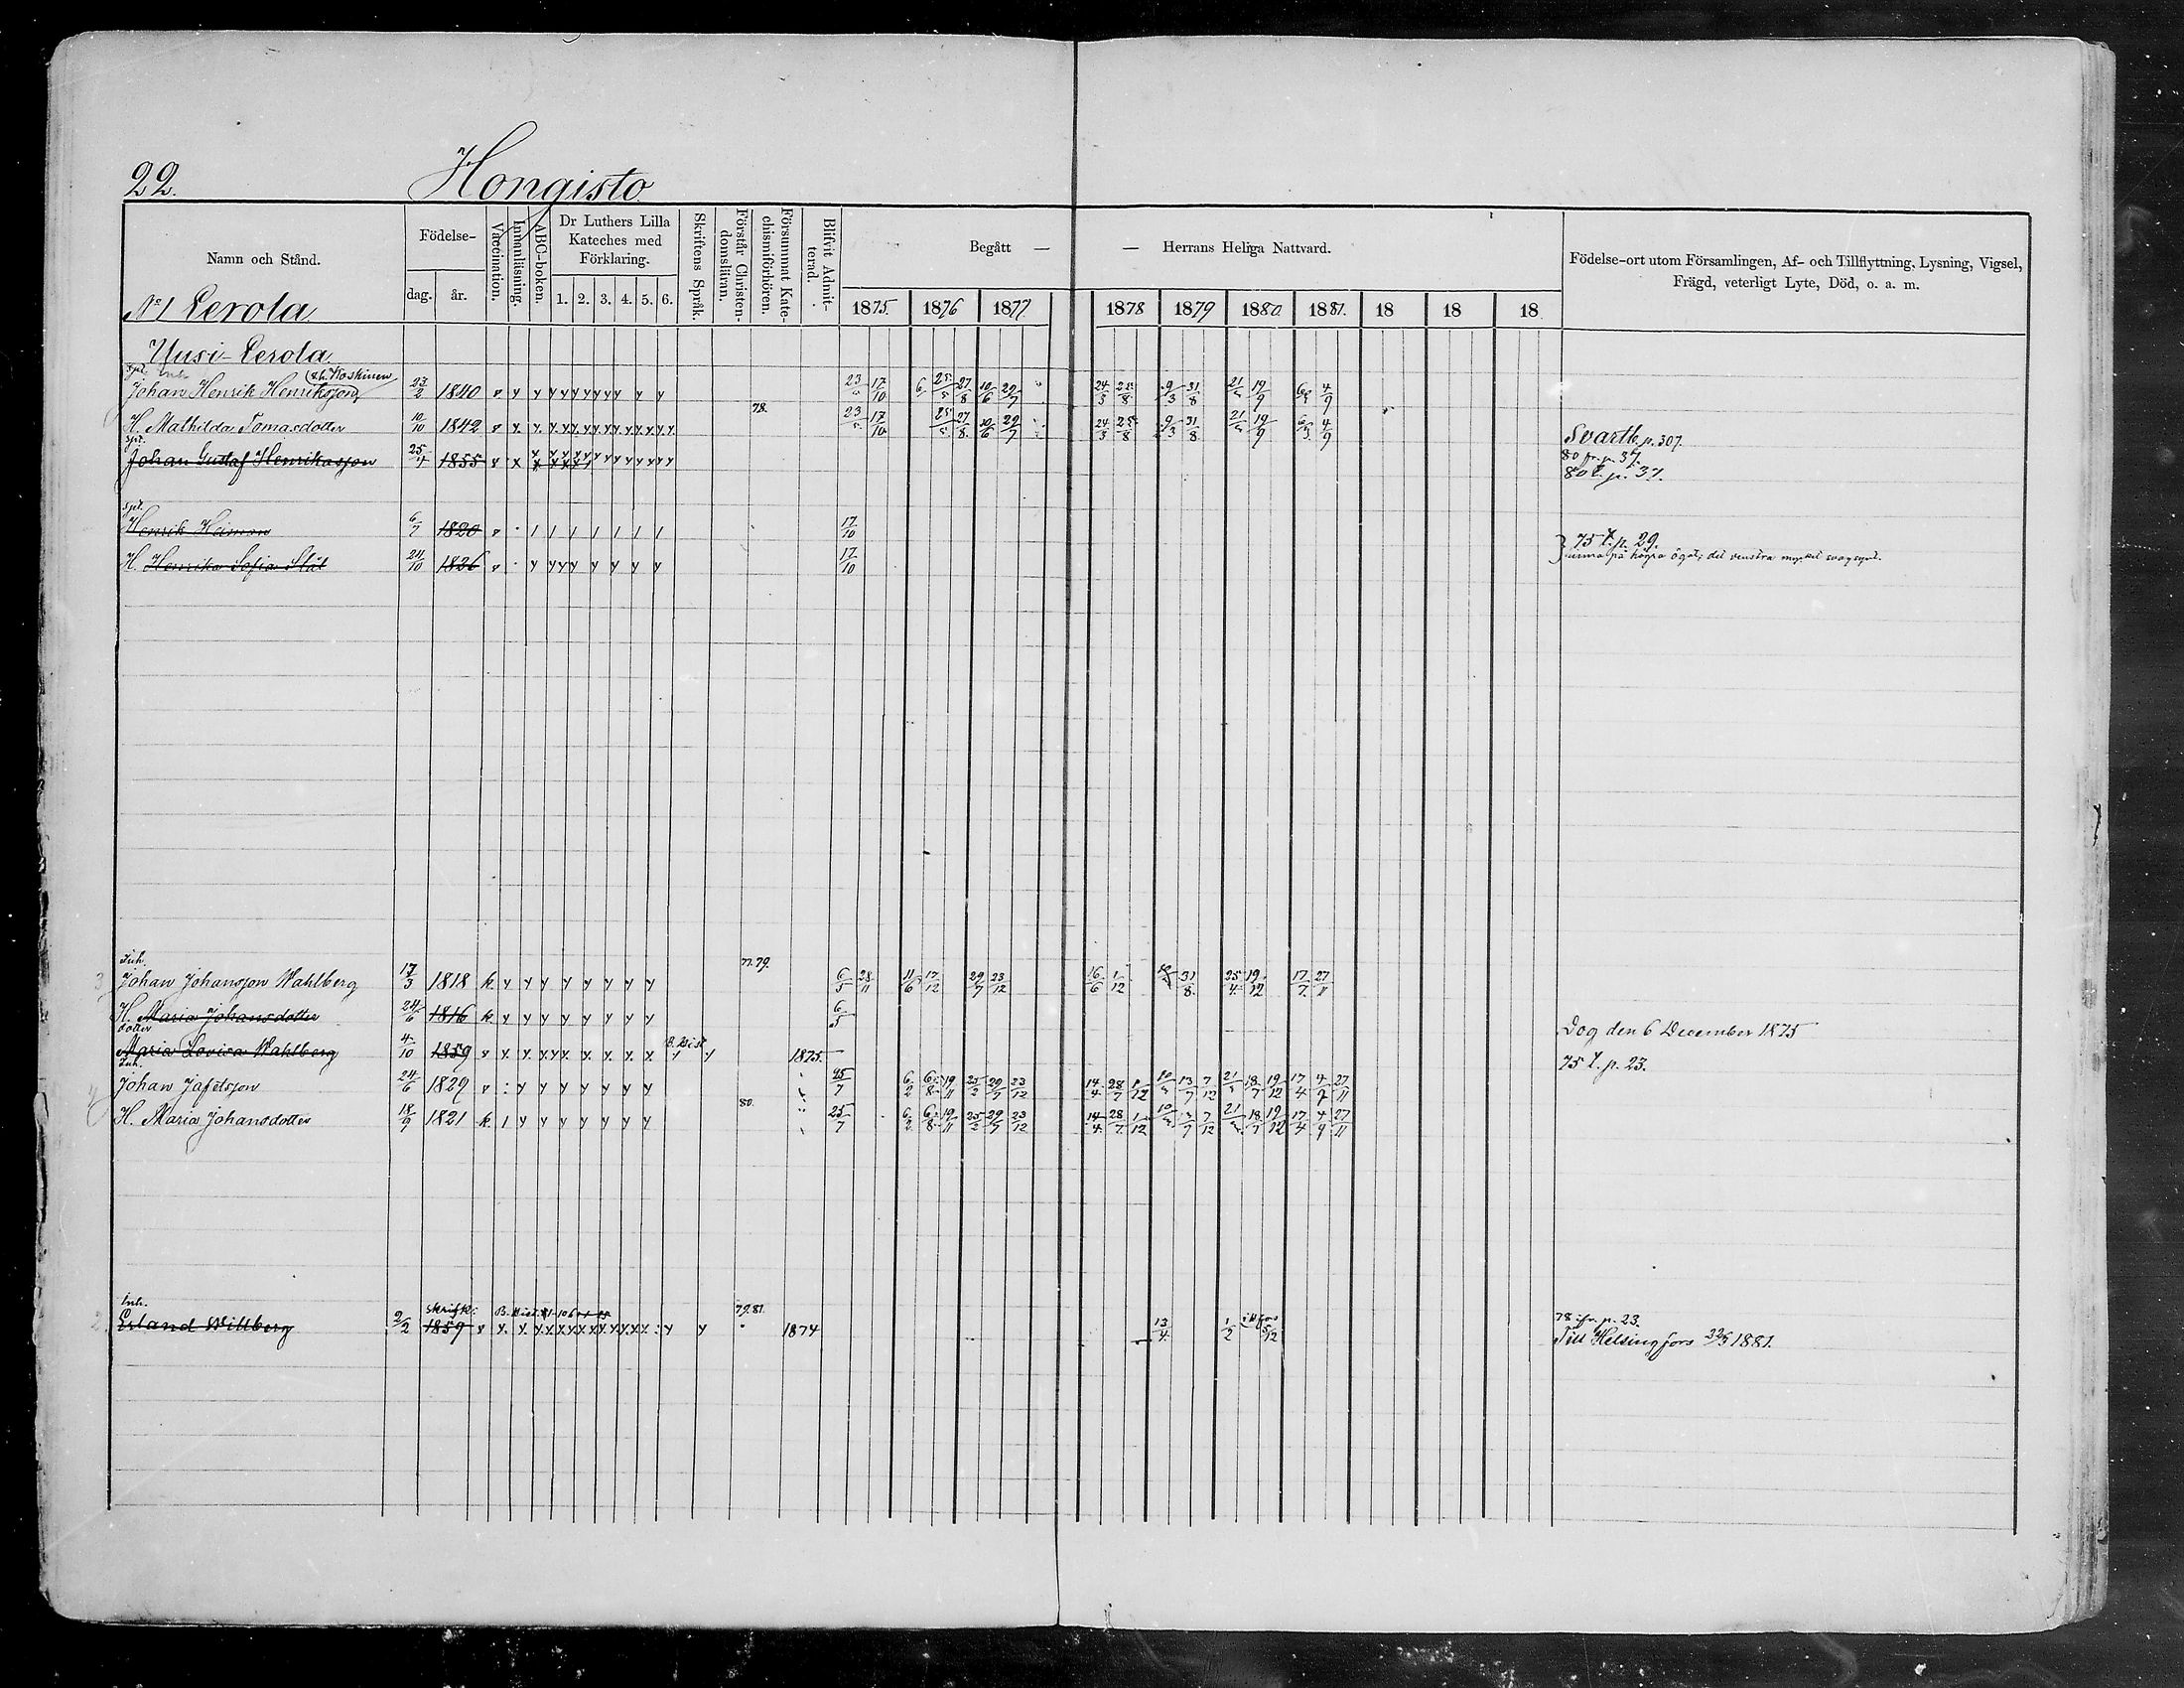 22.
Hongisto
Namn och Stånd.
Födelse-
dag.
år.
Vaccination.
Innanläsning.
ABC-boken.
Dr Luthers Lilla
Kateches med
Förklaring.
1. 2. 3. 4. 5. 6.
Skriftens Språk.
Förstår Christen-
domsläran.
Försummat Kate-
chismiförhören.
Blifvit Admit-
terad.
Begått — — Herrans Heliga Nattvard.
1875. 1876 1877 1878 1879 1880 1881. 18 18 18
Födelse-ort utom Församlingen, Af- och Tillflyttning, Lysning, Vigsel,
Frägd, veterligt Lyte, Död, o. a. m.
No 1 Perola
Uusi-Perola
Koskinen
Johan Henrik Henriksson 23/2 1840 23/5 17/10 25/5 27/8 10/6 29/7 24/3 25/8 9/3 31/8 21/3 19/9 6/3 4/9
78.
H. Mathilda Tomasdotter 10/10 1842 23/5 17/10 25/5 27/8 10/6 29/7 24/3 25/8 9/3 31/8 21/3 19/9 6/3 4/9
Johan Gustaf Henriksson 25/4 1855 Svartb. p. 307.
80 fr. p. 37.
80 t. p. 37.
Henrik Heimon 6/7 1820 17/10 75 t. p. 29.
H. Henrika Sofia Slät 24/10 1826 17/10 på högra ögat; det venstra mycket svagsynt.
Inh. 77. 79.
3 Johan Johansson Wahlberg 17/3 1818 k 6/5 28/11 11/6 17/12 29/7 23/12 16/6 1/12 31/8 25/4 19/12 17/7 27/11
H. Maria Johansdotter 24/6 1816 k 6/5 Dog den 6 December 1875
dotter
Maria Lovisa Wahlberg 4/10 1859 1875. 75 t. p. 23.
Inh.
4 Johan Jafetsson 24/6 1829 25/7 6/2 6/8 19/11 25/2 29/7 23/12 14/4 28/7 1/12 10/3 13/7 7/12 21/3 18/7 19/12 17/4 4/9 27/11
80.
H. Maria Johansdotter 18/9 1821 k 25/7 6/2 6/8 19/11 25/2 29/7 23/12 14/4 28/7 1/12 10/3 13/7 7/12 21/3 18/7 19/12 17/4 4/9 27/11
Inh. 79. 81. 78 ifr. p. 23.
2. Erland Willberg 2/2 1859 1874 13/4 1/2 5/12 Till Helsingfors 1881.